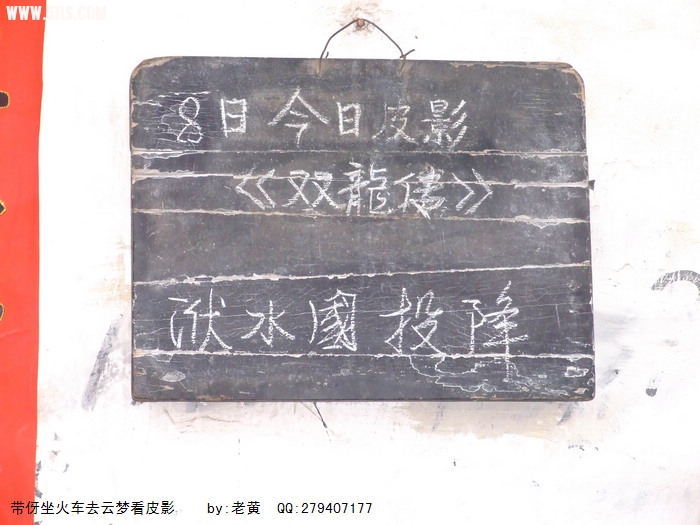 8日今日皮影
《双龍傳》
洑水國投降
带伢坐火车去云梦看皮影 by:老黄 QQ:279407177